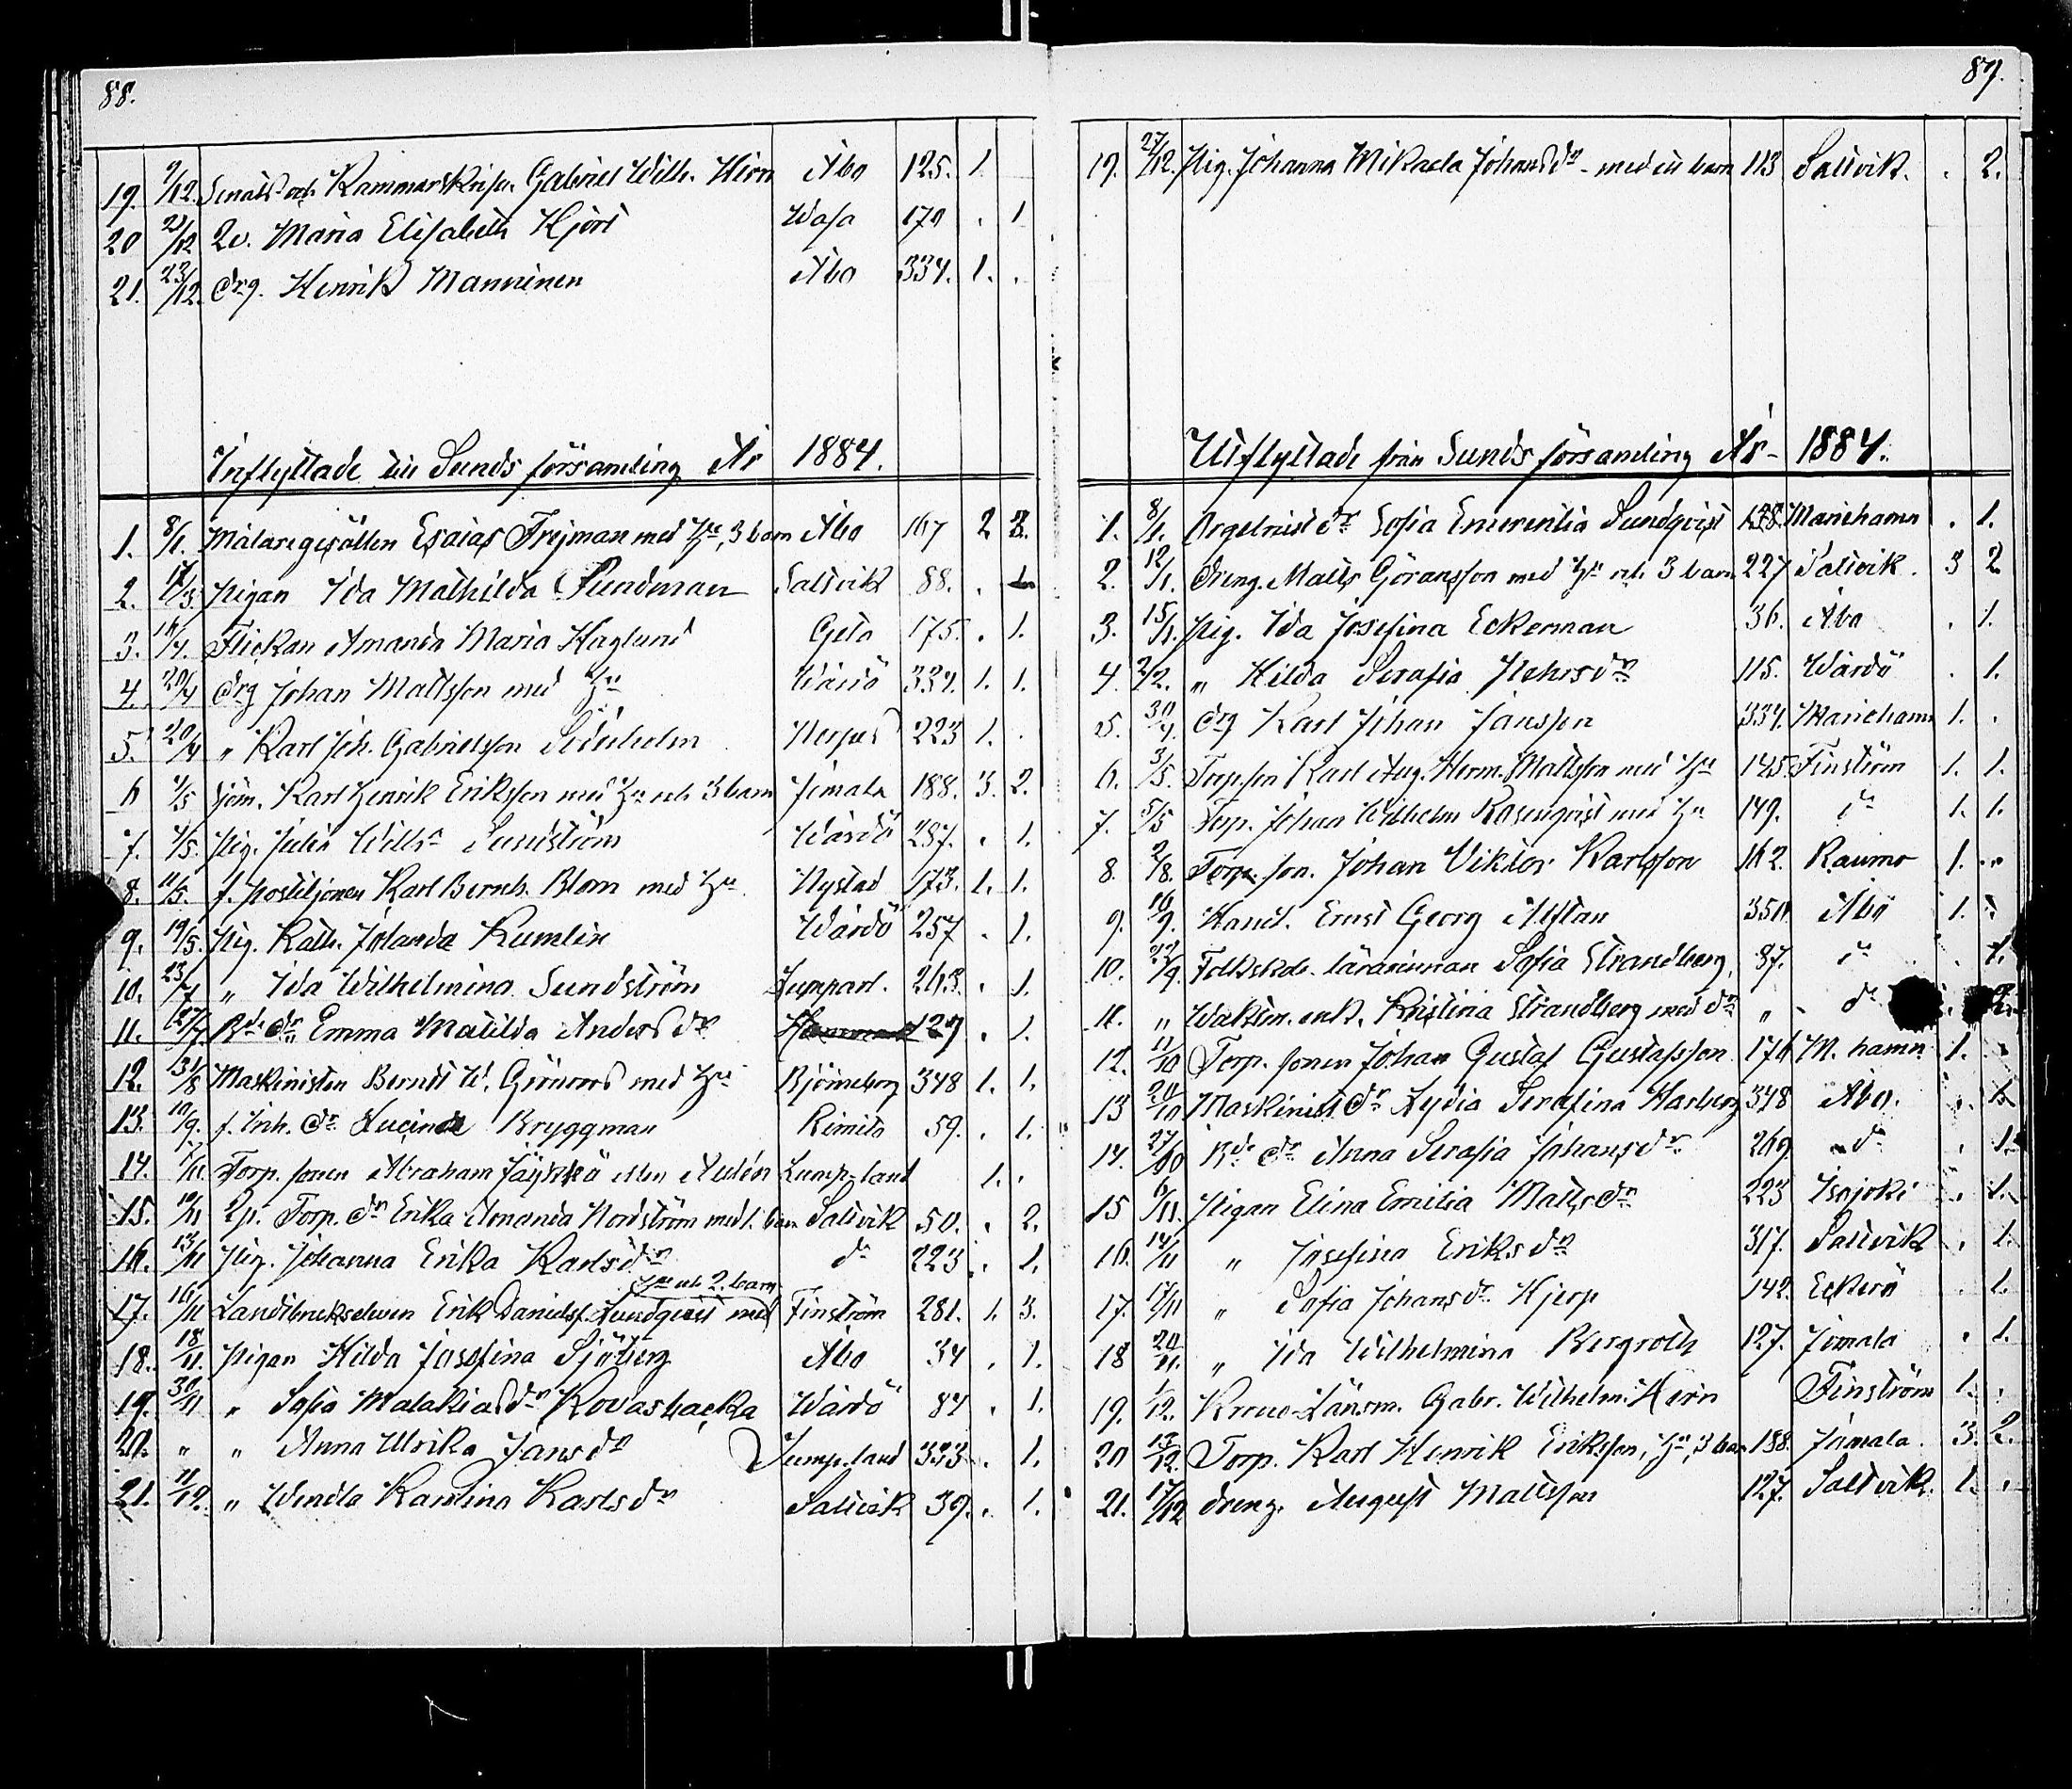 88.
19. 9/12. Senats- och Kammarskrifv. Gabriel Wilh. Hirn Åbo 125. 1
20 21/12 Qv. Maria Elisabeth Hjort Wasa 179 . 1
21. 23/12. Drg. Henrik Manninen Åbo 334. 1. .
Inflyttade till Sunds församling År 1884.
1. 8/1. Målaregesällen Esaias Frejman med hu, 3 barn Åbo 167 2 3.
2. Pigan Ida Mathilda Sundman Saltvik 88. . 1.
3. Flickan Amanda Maria Haglund Geta 175. . 1.
4. 20/4 Drg Johan Mattsson med hu Wårdö 339. 1. 1.
5. 20/4 " Karl Joh. Gabrielsson Söderholm 223 1. .
6 Sjöm. Karl Henrik Eriksson med hu och 3 barn Jomala 188. 3. 2.
7. Pig. Julia Willh:a Sundström Wårdö 287. . 1.
8. 11/5. f. postiljonen Karl Bernh. Blom med hu Nystad 173. 1. 1.
9. 19/5. Pig. Kath. Jolanda Kumlin Wårdö 257 . 1.
10. 23/7 " Ida Wilhelmina Sundström Lumparl. 263. . 1.
11. Bde dr Emma Matilda Anders dr 127 . 1.
12. 31/8 Maskinisten Berndt W. Grönroos med hu Björneborg 348 1. 1.
13. 10/9. f. Inh. dr Lucinda Bryggman Rimito 59. . 1.
14. Torp. sonen Abraham Jäykkä eller Aulén Lump-land 1. .
15. 10/11 Qp. Torp. dr Erika Amanda Nordström med 1. barn Saltvik 50. . 2.
16. 13/11 Pig. Johanna Erika Karlsdr do 223 . 1.
hu och 2. barn
17. 16/11 Landtbrukseleven Erik Danielss. Lundqvist med Finström 281. 1. 3.
18. 18/11. Pigan Hilda Josefina Sjöberg Åbo 34 . 1.
19. 30/11 " Sofia Malakiasdr Kovasbacka Wårdö 84 . 1.
20. " " Anna Ulrika Jansdr Lump-land 333 . 1.
21. 11/12. " Wendla Karolina Karlsdr Saltvik 39. . 1.
89.
19. 27/12. Pig. Johanna Mikaela Johansdr - med ett barn 113 Saltvik. . 2.
Utflyttade från Sunds församling År - 1884.
1. 8/1. Orgelnist dr Sofia Emerentia Sundqvist 138. Mariehamn . 1.
2. 12/1. Dreng. Matts Göransson med hu och 3 barn 227 Saltvik. 3 2
3. 15/1. Pig. Ida Josefina Eckerman 36. Åbo . 1.
4 2/2. " Hilda Serafia Pehrsdr 115. Wårdö . 1.
5. 30/4. Drg Karl Johan Jansson 334. Mariehamn 1. .
6. 3/5. Torp.son Karl Aug. Herm. Mattsson med hu 145. Finström 1. 1.
7. 5/5 Torp. Johan Wilhelm Rosenqvist med hu 149. do 1. 1.
8. 2/8. Torp. son. Johan Viktor Karlsson 162. Raumo 1. .
9. 16/9. Handl. Ernst Georg Åbo 1. .
10. Folkskole-lärarinnan Sofia Strandberg 37. do . 1.
11. " Waktm. enk. Kristina Strandberg med dr " do . 2.
12. 11/10 Torp. sonen Johan Gustaf Gustafsson M. hamn 1. .
13 20/10 Maskinist dr Lydia Serafina Harberg 348 Åbo. . 1.
14. 27/10 Bde dr Anna Serafia Johansdr 269 do . 1.
15 6/11. Pigan Elina Emilia Mattsdr 223 Isojoki . 1.
16. 14/11 " Josefina Eriksdr 317. Saltvik . 1.
17. 17/11 " Sofia Johansdr Hjerp 142. Eckerö . 1.
18 20/11. " Ida Wilhelmina Bergroth 127. Jomala . 1.
19. 1/12. Krono-Länsm. Gabr. Wilhelm Hirn Finström 1. .
20 13/12. Torp. Karl Henrik Eriksson, hu, 3 barn 188. Jomala. 3. 2.
21. 17/12 Dreng. August Mattsson 127. Saltvik. 1. .